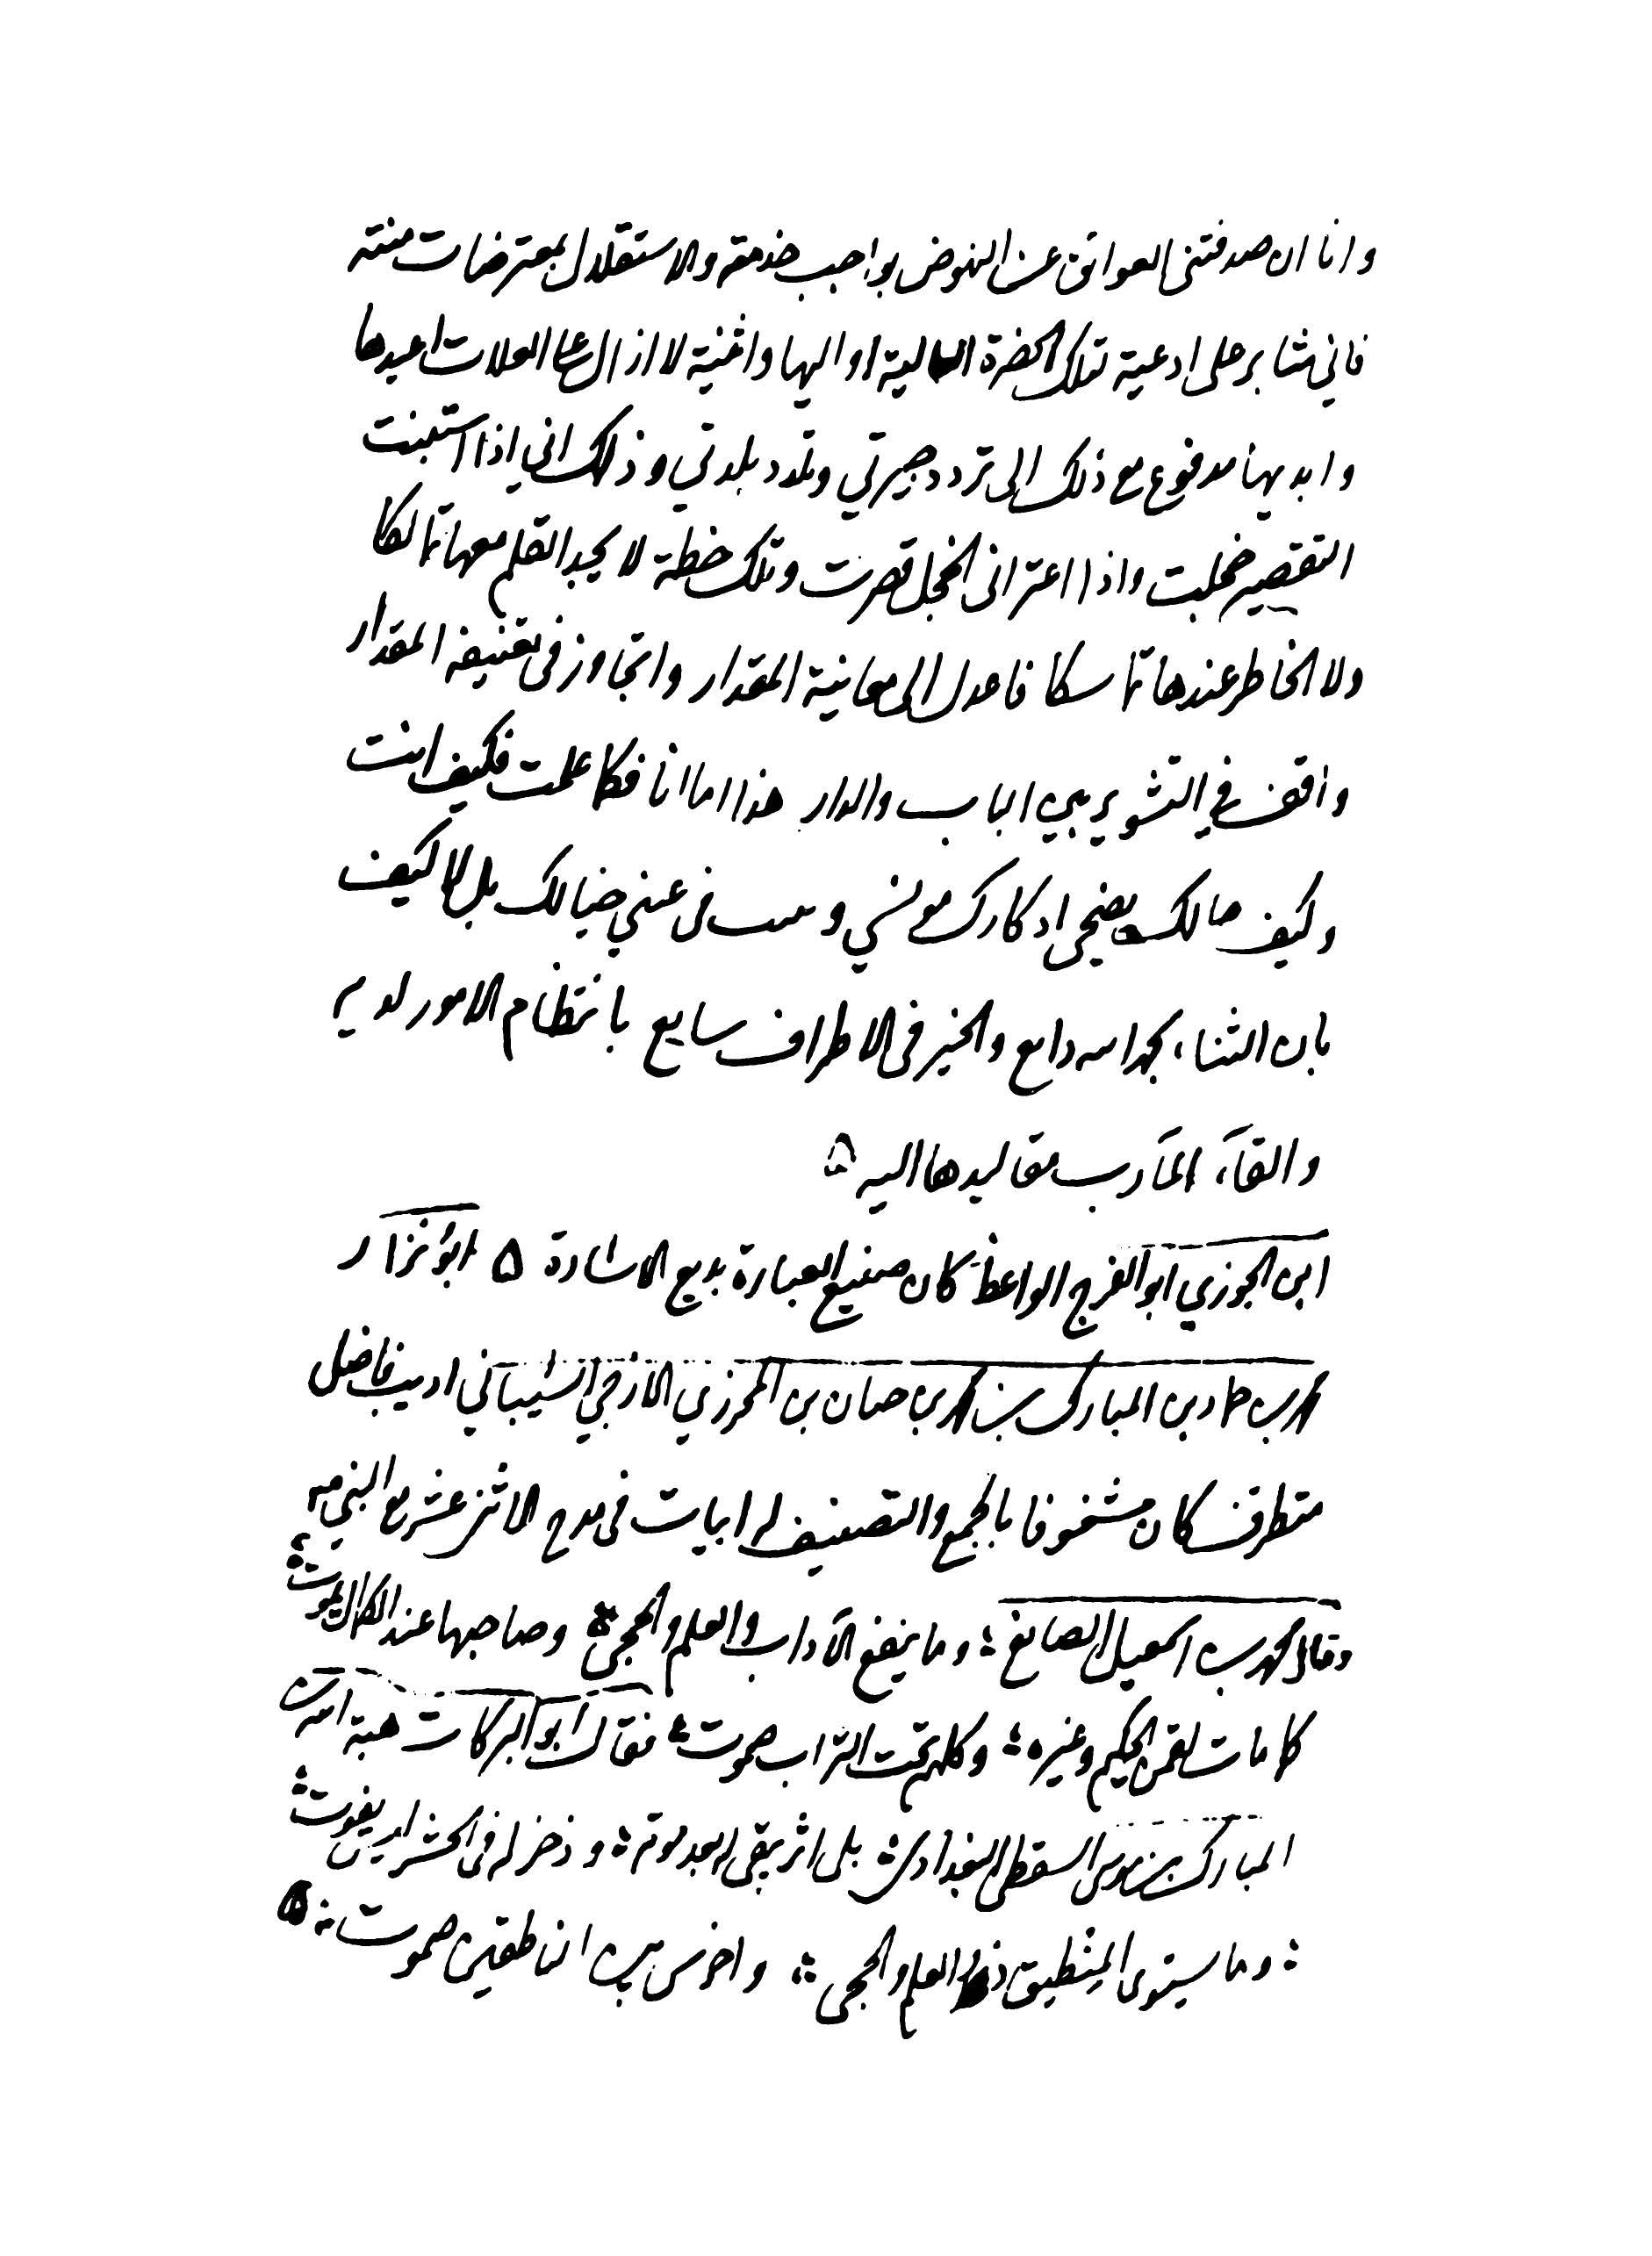 وانا ان صدفتنى العوائق عن النهوض بواجب خدمته والاستقلال بمعترضات منته
فاني مثابر على ادعية لتلك الحضرة العالية اواليها واثنية لا ازال على العلات اعيدها
وابديها مدفوع مع ذلك الى تردد حيرتي وتلدد بلدتي وذلك اني اذا استبنت
التقصير خجلت واذا اعترانى الخجل قصرت وتلك خطة لا يجد القلم معها تمالكا
ولا الخاطر عندها تماسكا فاعدل الى معاينة المقدار واتجاوز فى تعنيفه المقدار
واقف في التشوير بين الباب والدار هذا اما انا فكما علمت فكيف انت
وكيف حالك يضحى ادكارك مونسي و فى عيني خيالك بل لا كيف
بان الثناء بحمد الله دايع والخبر فى الاطراف سايع بانتظام الامور لديه
والقآء المآرب مقاليدها اليه ۵
ابن الجوزي ابو الفرج الواعظ كان صنيع العبارة بديع الاشارة ۵ ابو نزار
محمد بن حماد بن المبارك بن محمد بن حسان بن المحرزي الازجي الشيباني اديب فاضل
متطرف كان مشغوفا بالجمع والتصنيف له ابيات فى مدح الاثنى عشر مع النبي ص
وقال محمد بن اسمعيل الصايغ ؛ وما ينفع الآداب والعلم والحجى ؛ وصاحبها عند الكمال يموت ؛
كما مات لقمن الحكيم وغيره ؛ وكلهم تحت التراب صموت ؛ فقال ابو البركات هبة الله بن
المبارك بن موسى السقطى البغدادى ؛ بلى اثر يبقى له بعد موته ؛ وذخر له فى الحشر ليس يفوت ؛
؛ وما يستوى المنطيق ذو العلم والحجى ؛ واخرس بين الناطقين صموت ؛ ۵